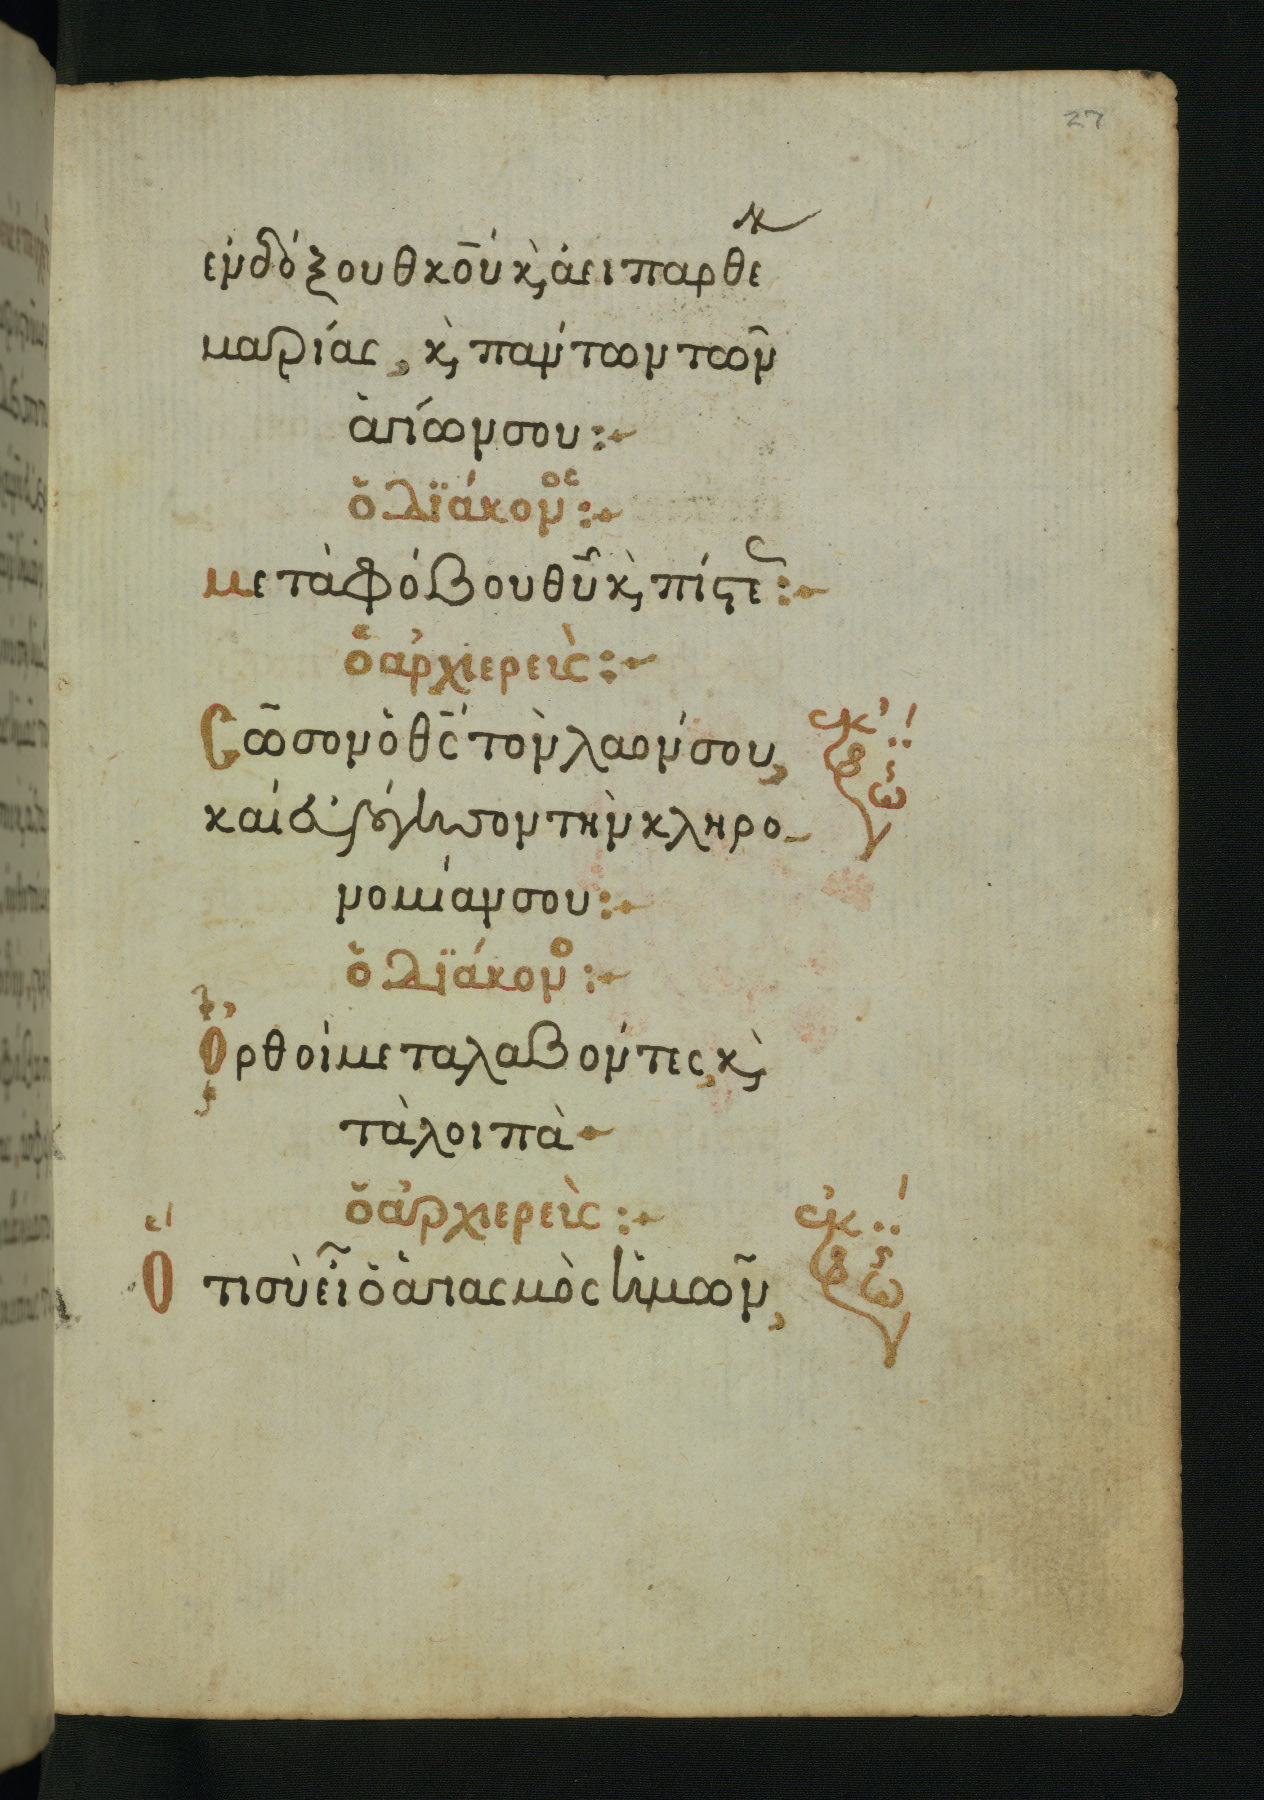 27
ἐνδόξου θκου κ, ἀειπαρθε
μαρίας, κ, πάντων τῶν
ἁγίων σου :-
ὁ διάκονος :-
μετὰ φόβου θυ κ, πίστε :-
ὁ ἀρχιερεὶς :-
Σῶσον ὁ θς τὸν λαόν σου,
καὶ εὐλόγησον τὴν κληρο-
νομίαν σου :-
ὁ διάκονο :-
Ὀρθοὶ μεταλαβόντες, κ,
τὰ λοιπὰ -
ὁ ἀρχιερεὶς :-
Ὅτι σὺ εἶ ὁ ἁγιασμὸς ἡμῶν,